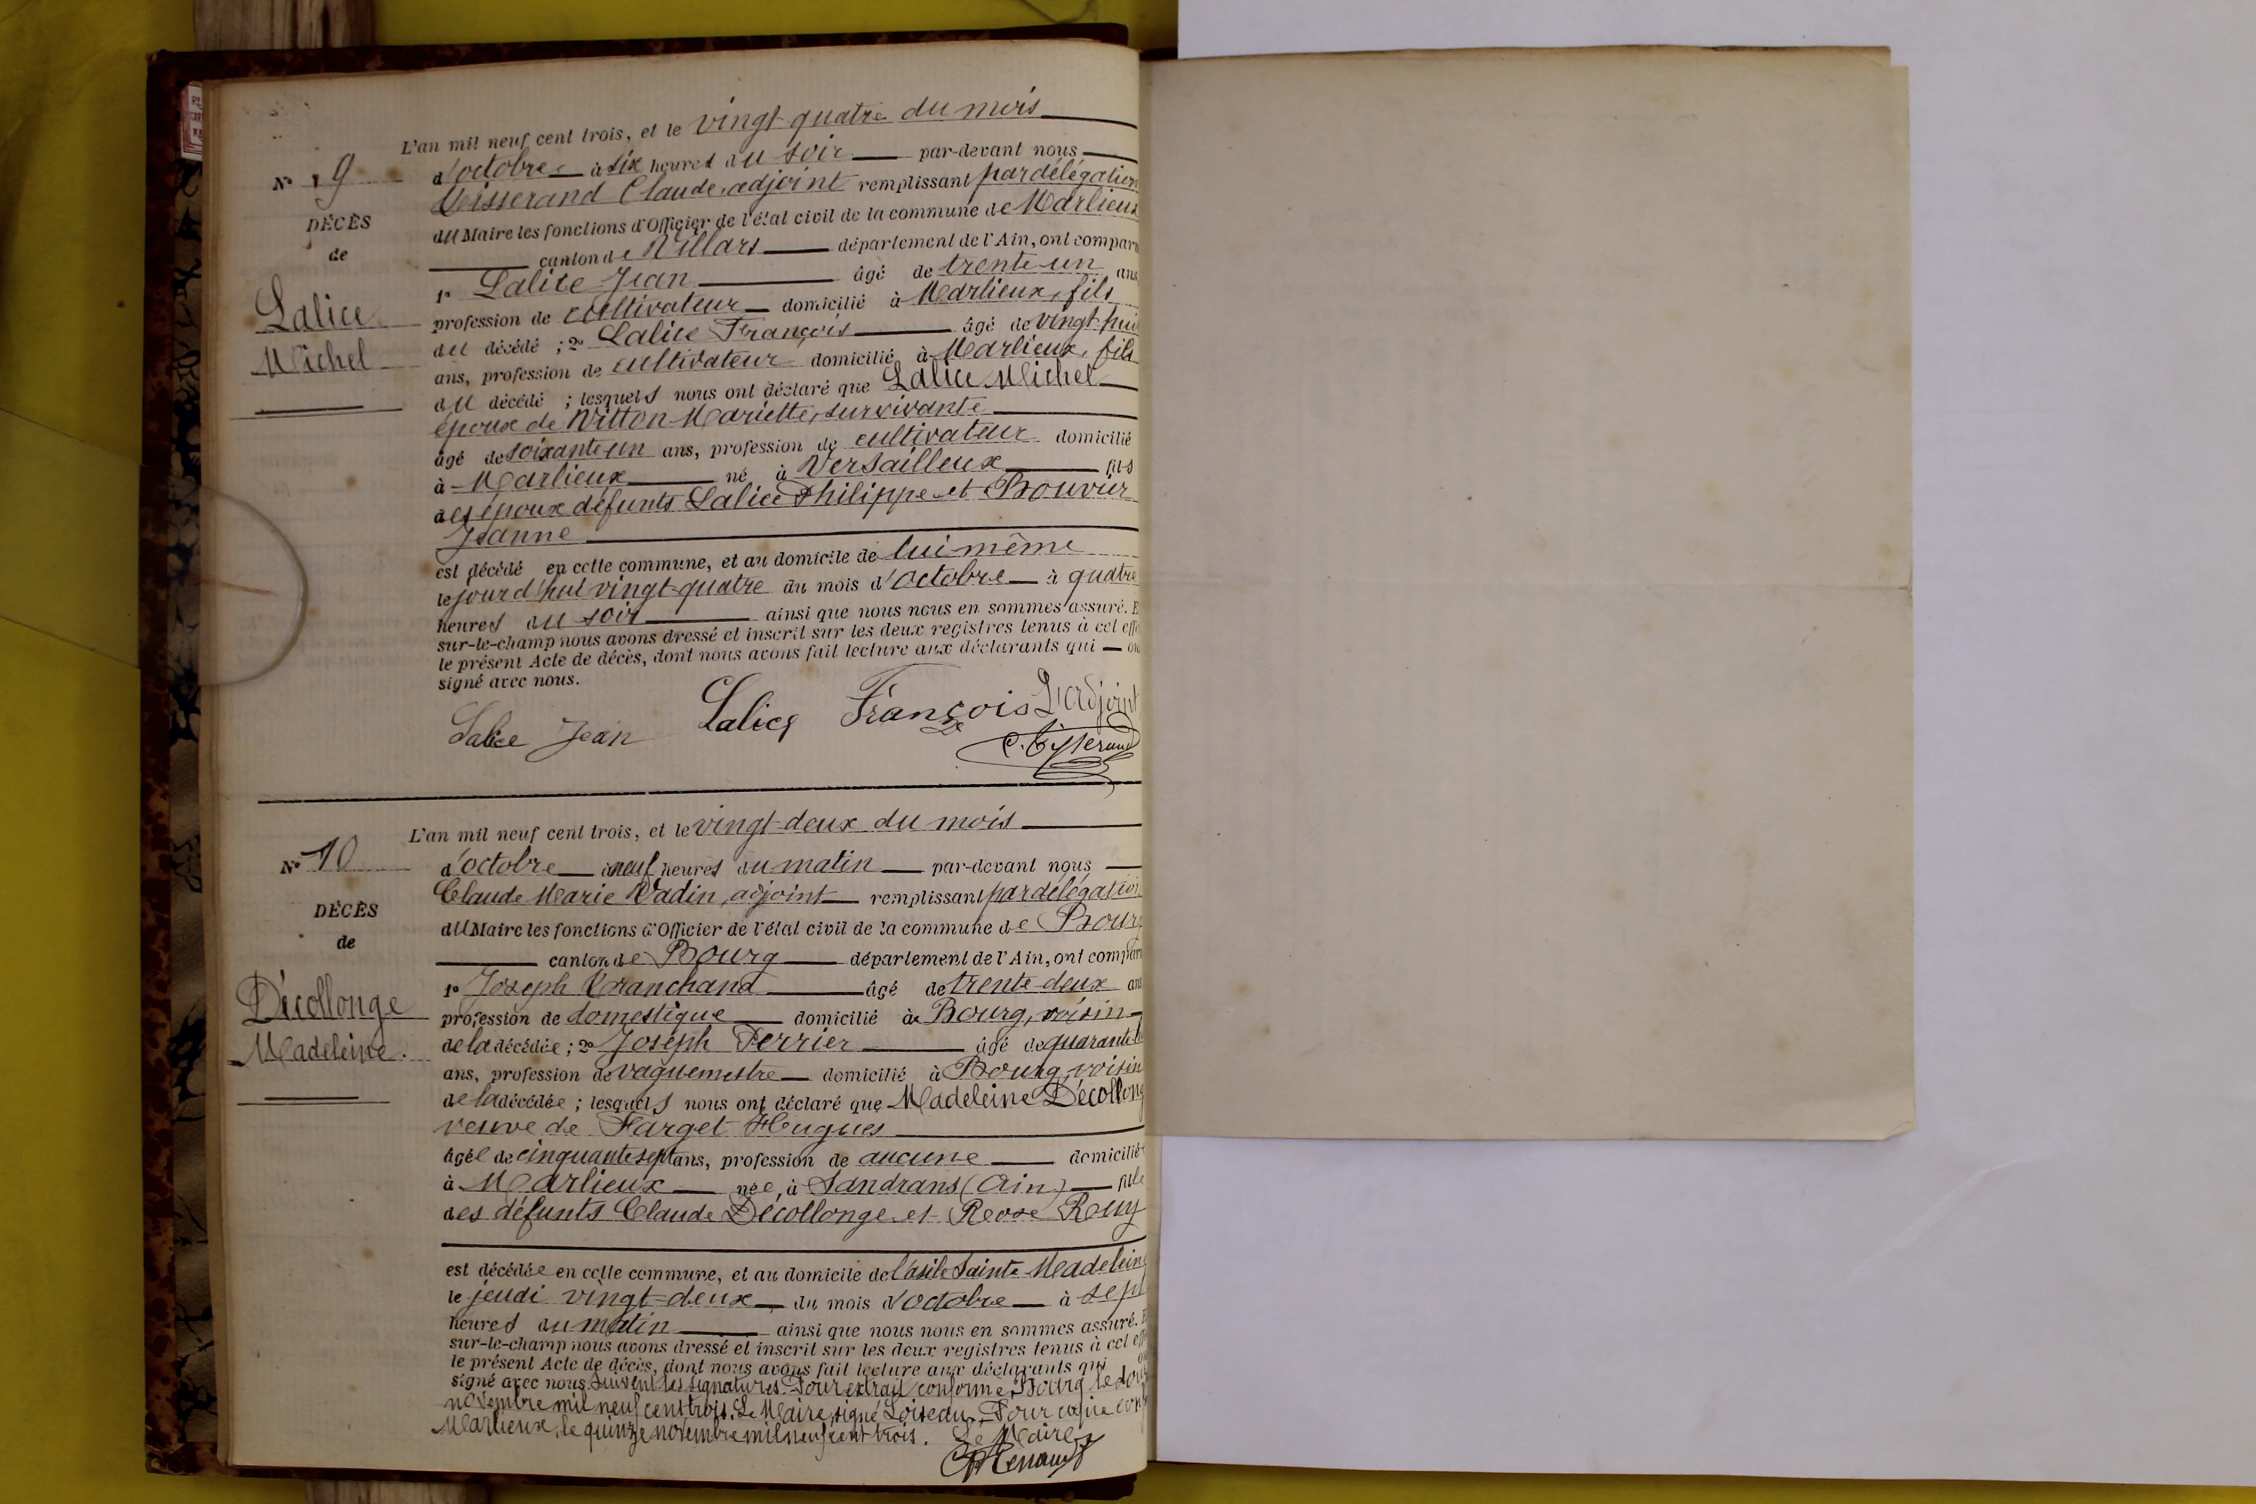 L'an mil neuf cent trois, et le vingt quatre du mois
N° 9
d'octobre à six heures du soir par-devant nous
Tisserand Claude, adjoint remplissant par délégation
DÉCÈS
du Maire les fonctions d'Officier de l'état civil de la commune de Marlieux
de
canton de Villars département de l'Ain, ont comparu
1° Lalice Jean âgé de trente un ans
Lalice
profession de cultivateur domicilié à Marlieux, fils
du décédé ; 2° Lalice François âgé de vingt-huit
Michel
ans, profession de cultivateur domicilié à Marlieux, fils
du décédé ; lesquels nous ont déclaré que Lalice Michel
époux de Vitton Mariette, survivante
âgé de soixante un ans, profession de cultivateur domicilié
à Marlieux né à Versailleux fils
des époux défunts Lalice Philippe et Bouvier
Jeanne
est décédé en cette commune, et au domicile de lui même
le jourd'hui vingt-quatre du mois d'octobre à quatre
heures du soir ainsi que nous nous en sommes assuré. E
sur-le-champ nous avons dressé et inscrit sur les deux registres tenus à cet effe
le présent Acte de décès, dont nous avons fait lecture aux déclarants qui on
signé avec nous.
Lalice Jean Lalice François L'adjoint
C. Tisserand
L'an mil neuf cent trois, et le vingt-deux du mois
N° 10
d'octobre à neuf heures du matin par-devant nous
Claude Marie Vadin, adjoint remplissant par délégation
DÉCÈS
du Maire les fonctions d'Officier de l'état civil de la commune de Bourg
de
canton de Bourg département de l'Ain, ont comparu
1° Joseph âgé de trente-deux ans
Décollonge
profession de domestique domicilié à Bourg, voisin
Madeleine.
de la décédée ; 2° Joseph Perrier âgé de quarante
ans, profession de vaguemestre domicilié à Bourg, voisin
de la décédée ; lesquels nous ont déclaré que Madeleine Décollong
veuve de Farget Hugues
âgée de cinquante sept ans, profession de aucune domicilié
à Marlieux née, à Sandrans (Ain) fille
des défunts Claude Décollonge et Rose Reuy
est décédée en cette commune, et au domicile de l'asile Sainte Madeleine
le jeudi vingt-deux du mois d'octobre à sept
heures du matin ainsi que nous nous en sommes assuré. E
sur-le-champ nous avons dressé et inscrit sur les deux registres tenus à cet effe
le présent Acte de décès, dont nous avons fait lecture aux déclarants qui on
signé avec nous. Suivent les signatures. Pour extrait conforme, Bourg le
novembre mil neuf cent trois. Le Maire, signé Loiseau. Pour copie conf
Marlieux, le quinze novembre mil neuf cent trois. Le Maire,